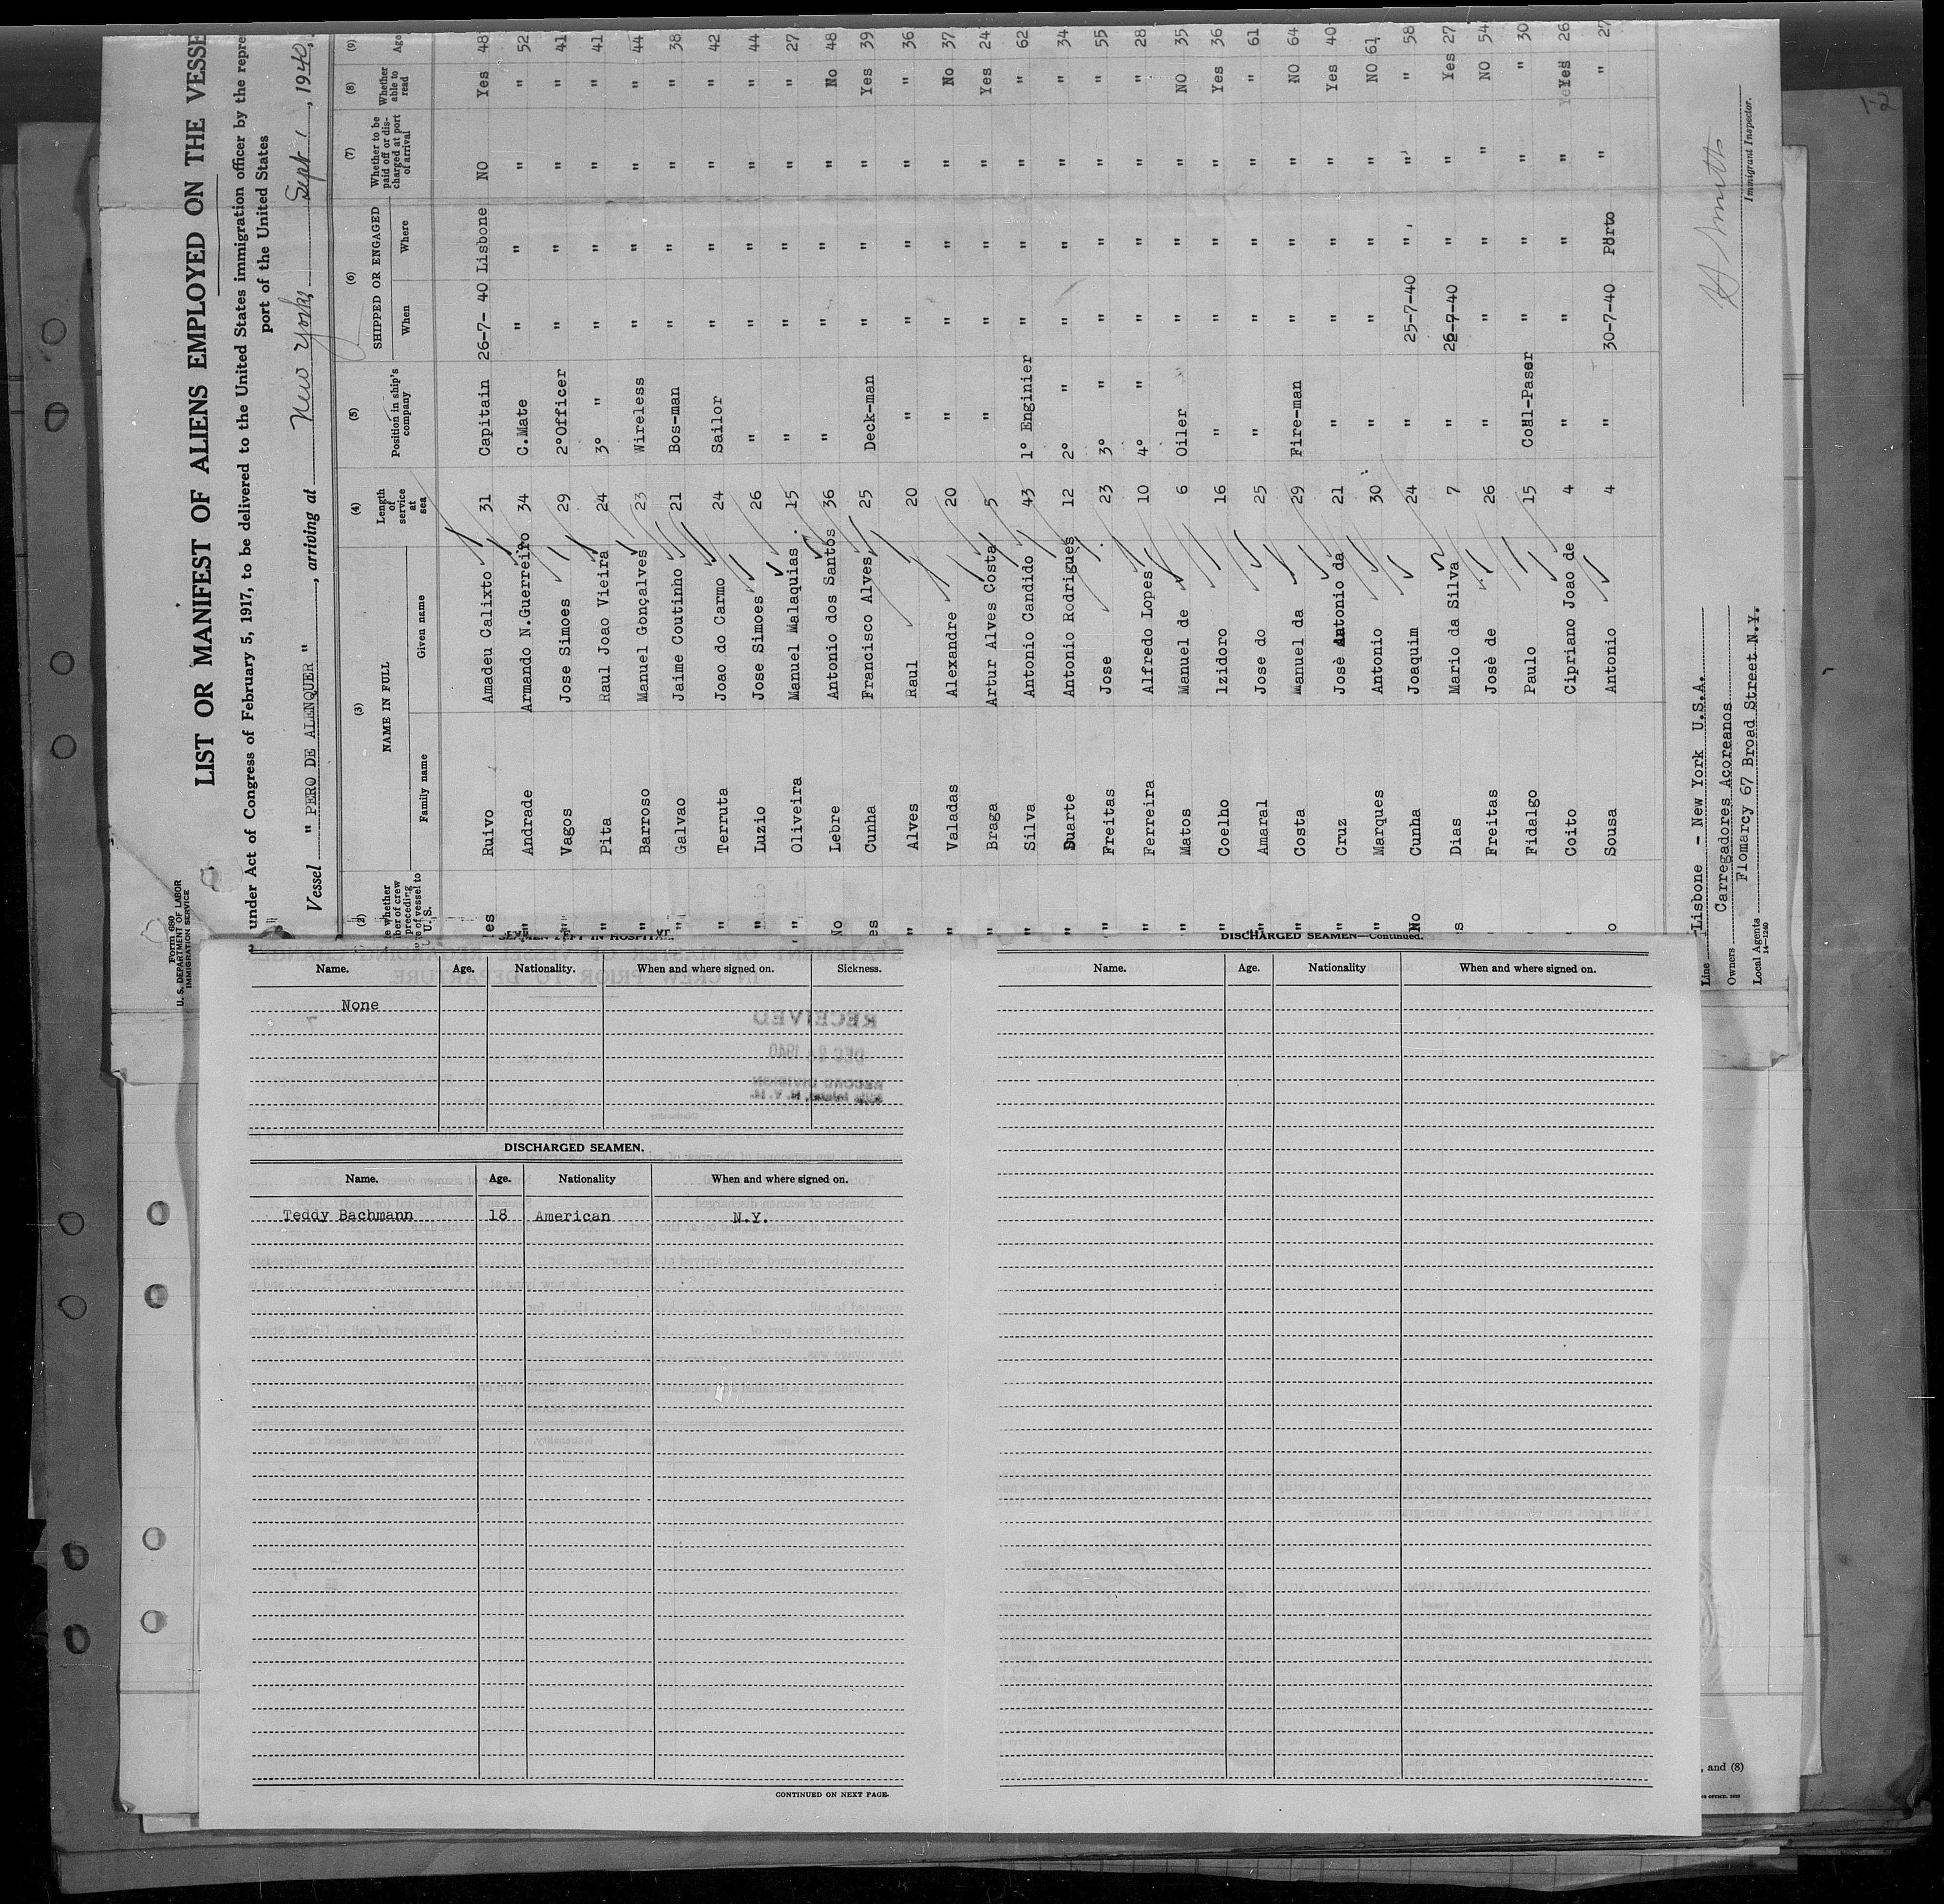 Form 680
U. S. DEPARTMENT OF LABOR
IMMIGRATION SERVICE
LIST OR MANIFEST OF ALIENS EMPLOYED ON THE VESSE
under Act of Congress of February 5, 1917, to be delivered to the United States immigration officer by the repre
port of the United States
Vessel " PERO DE ALENQUER ", arriving at New York, Sept 1, 1940,
(2) (3) (4) (5) (6) (7) (8) (9)
NAME IN FULL Length of service at sea Position in ship's company SHIPPED OR ENGAGED Whether to be paid off or discharged at port of arrival Whether able to read Age
Family name Given name When Where
es Ruivo Amadeu Calixto 31 Capitain 26-7- 40 Lisbone NO Yes 48
" Andrade Armando N.Guerreiro 34 C.Mate " " " " 52
" Vagos Jose Simoes 29 2ºOfficer " " " " 41
" Pita Raul Joao Vieira 24 3º " " " " " 41
" Barroso Manuel Gonçalves 23 Wireless " " " " 44
" Galvao Jaime Coutinho 21 Bos-man " " " " 38
" Terruta Joao do Carmo 24 Sailor " " " " 42
" Luzio Jose Simoes 26 " " " " " 44
" Oliveira Manuel Malaquias 15 " " " " " 27
No Lebre Antonio dos Santos 36 " " " " No 48
es Cunha Francisco Alves 25 Deck-man " " " Yes 39
" Alves Raul 20 " " " " " 36
" Valadas Alexandre 20 " " " " No 37
" Braga Artur Alves Costa 5 " " " " Yes 24
" Silva Antonio Candido 43 1º Enginier " " " " 62
" Duarte Antonio Rodrigues 12 2º " " " " " 34
" Freitas Jose 23 3º " " " " " 55
" Ferreira Alfredo Lopes 10 4º " " " " " 28
" Matos Manuel de 6 Oiler " " " NO 35
" Coelho Izidoro 16 " " " " Yes 36
" Amaral Jose do 25 " " " " " 61
" Costa Manuel da 29 Fire-man " " " NO 64
" Cruz Josè Antonio da 21 " " " " Yes 40
" Marques Antonio 30 " " " " NO 61
No Cunha Joaquim 24 " 25-7-40 " " " 58
s Dias Mario da Silva 7 " 26-7-40 " " Yes 27
Freitas Josè de 26 " " " " NO 54
Fidalgo Paulo 15 Coal-Paser " " " " 30
Coito Cipriano Joao de 4 " " " " Yes 26
o Sousa Antonio 4 " 30-7-40 Porto " " 27
Line Lisbone - New York U.S.A.
Owners Carregadores Acoreanos
Local Agents Flomarcy 67 Broad Street N.Y.
14—1240
Immigrant Inspector.
SEAMEN LEFT IN HOSPITAL.
Name. Age. Nationality. When and where signed on. Sickness.
None
DISCHARGED SEAMEN.
Name. Age. Nationality When and where signed on.
Teddy Bachmann 18 American N.Y.
CONTINUED ON NEXT PAGE.
DISCHARGED SEAMEN—Continued.
Name. Age. Nationality When and where signed on.
RECEIVED
DEC 1940
RECORD DIVISION
, and (8)